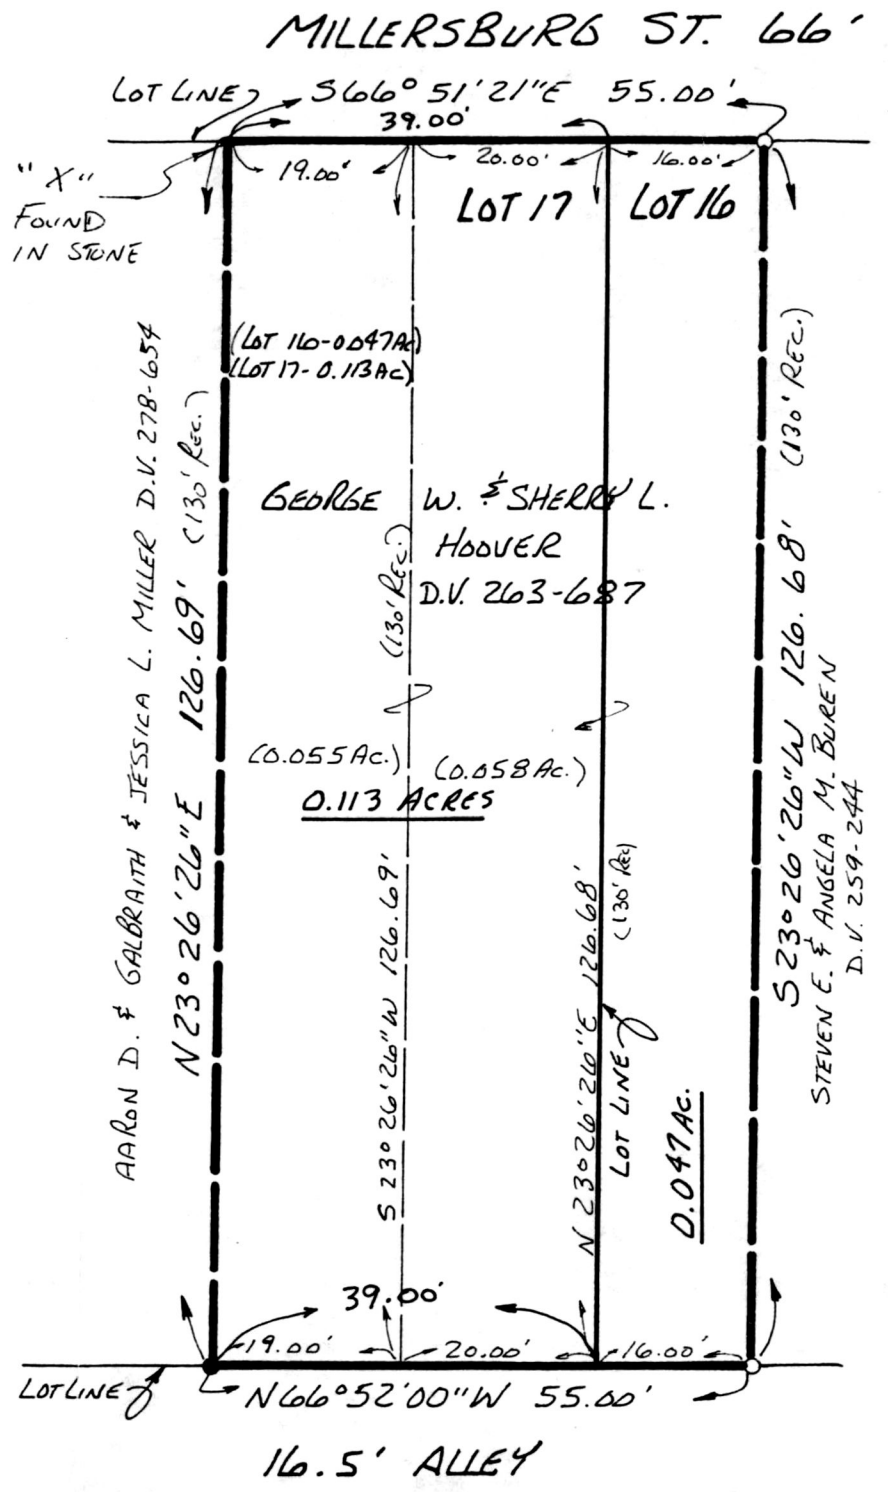 MILLERSBURG ST. 66'
LOT LINE
S66° 51' 21"E 55.00'
39.00'
19.00'
20.00'
16.00'
"X"
FOUND
IN STONE
LOT 17
LOT 16
(LOT 16-0.047Ac)
(LOT 17-0.113Ac)
AARON D. & GALBRAITH & JESSICA L. MILLER D.V. 278-654
N 23° 26' 26"E 126.69' (130' REC.)
GEORGE W. & SHERRY L.
HOOVER
D.V. 263-687
(130' REC.)
(0.055 Ac.)
(0.058 Ac.)
0.113 ACRES
S 23° 26' 26"W 126.69'
N 23° 26' 26"E 126.68'
(130' REC)
LOT LINE
0.047 Ac.
S 23° 26' 26"W 126.68' (130' REC.)
STEVEN E. & ANGELA M. BUREN
D.V. 259-244
39.00'
19.00'
20.00'
16.00'
LOT LINE
N66° 52' 00"W 55.00'
16.5' ALLEY